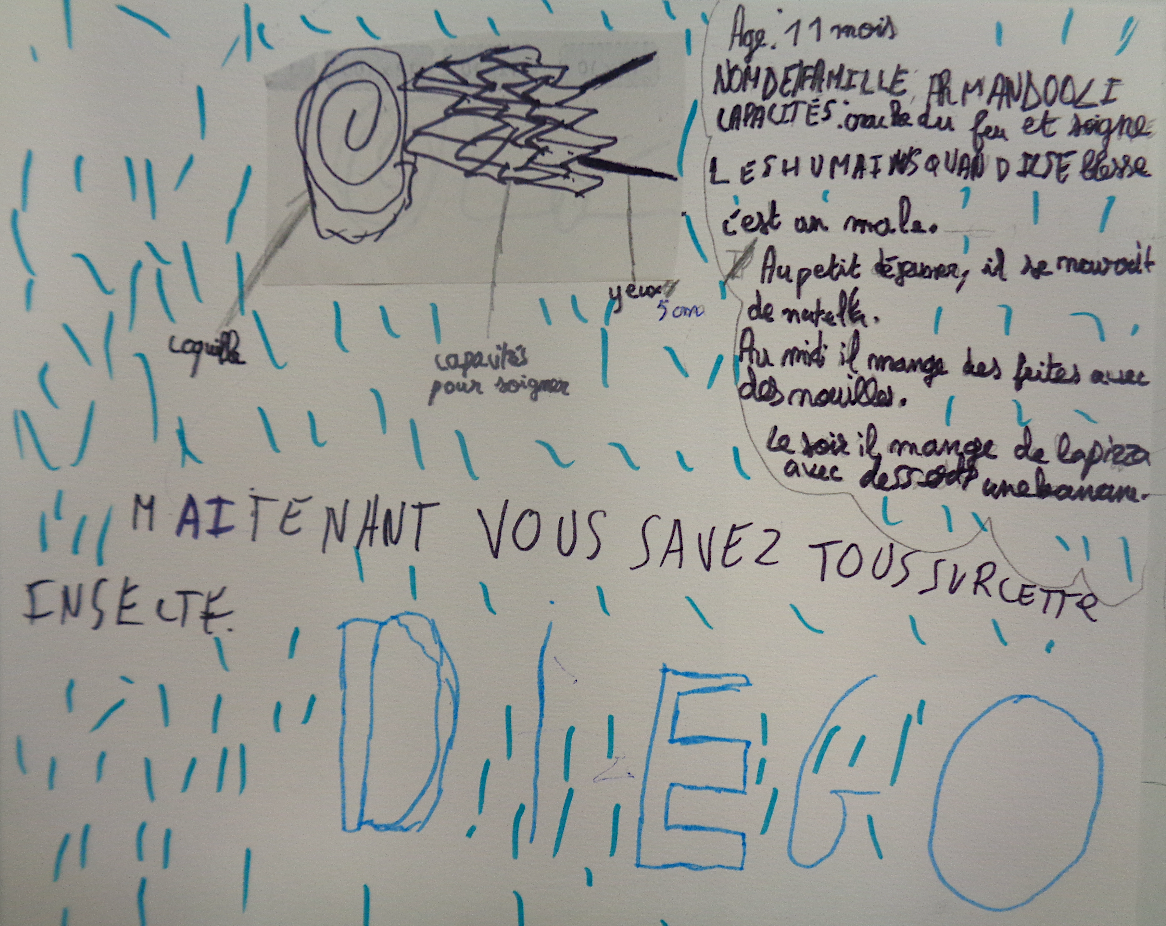 Age: 11 mois
NOM DE FAMILLE, ARMANDOOLI
CAPACITÉS: crache du feu et soigne
LES HUMAINS QUAND IL SE blesse
c'est un male.
Au petit déjeuner, il se nourait
de nutella.
Au midi il mange des frites avec
des nouilles.
Le soir il mange de la pizza
avec dessert une banane.
yeux
5 cm
coquille
capacités
pour soigner
MAITENANT VOUS SAVEZ TOUS SUR CETTE
INSECTE.
DIEGO